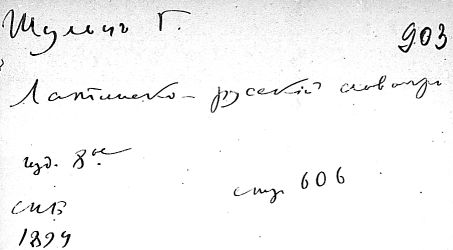 Шульц Г. 903
Латинско-русскій словарь
изд. 8ое
стр. 606
СПБ
1894